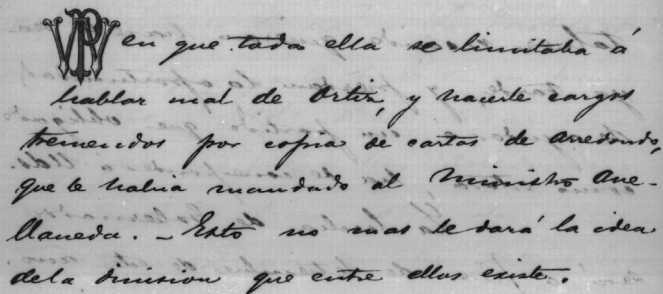 en que toda ella se limitaba á
hablar mal de Ortiz, y hacerle cargos
tremendos por copia de cartas de Arredondo,
que le habia mandado al Ministro Ave-
llaneda. – Esto no mas le dará la idea
dela division que entre ellos existe.